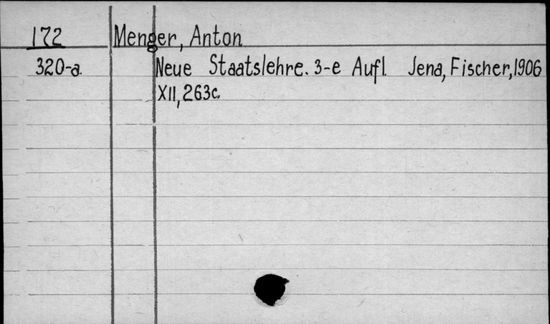 172 Menger, Anton
320-a. Neue Staatslehre. 3-e Aufl. Jena, Fischer, 1906
XII, 263c.